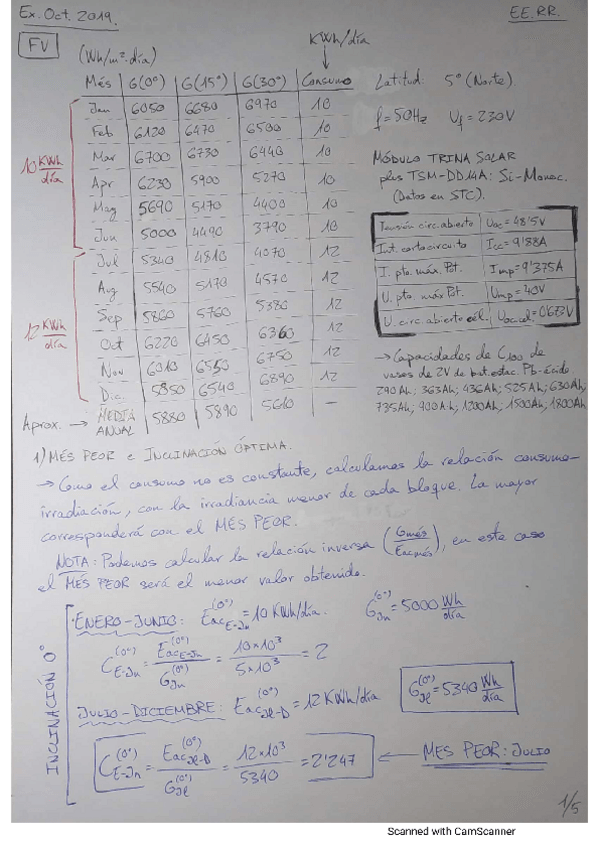 Ex. Oct. 2019.
EE.RR.
FV
(Wh/m²·día)
KWh/día
Més | G(0°) | G(15°) | G(30°) | Consumo
Jan | 6050 | 6680 | 6970 | 10
Feb | 6120 | 6470 | 6500 | 10
Mar | 6700 | 6730 | 6440 | 10
Apr | 6230 | 5900 | 5270 | 10
May | 5690 | 5170 | 4400 | 10
Jun | 5000 | 4490 | 3790 | 10
Jul | 5340 | 4810 | 4070 | 12
Aug | 5540 | 5170 | 4570 | 12
Sep | 5860 | 5760 | 5380 | 12
Oct | 6220 | 6450 | 6360 | 12
Nov | 6010 | 6550 | 6750 | 12
Dic. | 5850 | 6540 | 6890 | 12
Aprox. → MEDIA ANUAL | 5880 | 5890 | 5610 | —
10 KWh/día
12 KWh/día
Latitud: 5° (Norte).
f = 50Hz U_f = 230V
MÓDULO TRINA SOLAR
plus TSM-DD14A: Si-Monoc.
(Datos en STC).
Tensión circ. abierto | Uoc = 48'5V
Int. cortocircuito | Icc = 9'88A
I. pto. máx. Pot. | Imp = 9'375A
U. pto. máx Pot. | Ump = 40V
U. circ abierto cél. | Uoc,cel = 0'673V
→ Capacidades de C100 de
vasos de 2V de bat. estac. Pb-ácido
290Ah; 363Ah; 436Ah; 525Ah; 630Ah;
735Ah; 900Ah; 1200Ah; 1500Ah; 1800Ah
1) MÉS PEOR e INCLINACIÓN ÓPTIMA.
→ Como el consumo no es constante, calculamos la relación consumo-
irradiación, con la irradiancia menor de cada bloque. La mayor
corresponderá con el MÉS PEOR.
NOTA: Podemos calcular la relación inversa (Gmés/Eacmés), en este caso
el MÉS PEOR será el menor valor obtenido.
INCLINACIÓN 0°
ENERO-JUNIO: Eac_E-Jn^(0°) = 10 KWh/día. G_Jn^(0°) = 5000 Wh/día
C_E-Jn^(0°) = Eac_E-Jn^(0°)/G_Jn^(0°) = 10×10³/5×10³ = 2
JULIO-DICIEMBRE: Eac_Jl-D^(0°) = 12 KWh/día G_Jl^(0°) = 5340 Wh/día
C_E-Jn^(0°) = Eac_Jl-D^(0°)/G_Jl^(0°) = 12×10³/5340 = 2'247 ← MES PEOR: JULIO
1/5
Scanned with CamScanner